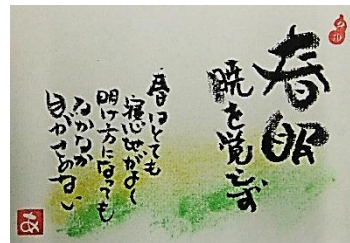 春眠
暁を覚えず
春はとても
寝心地がよく
明け方になっても
なかなか
目がさめない
あ